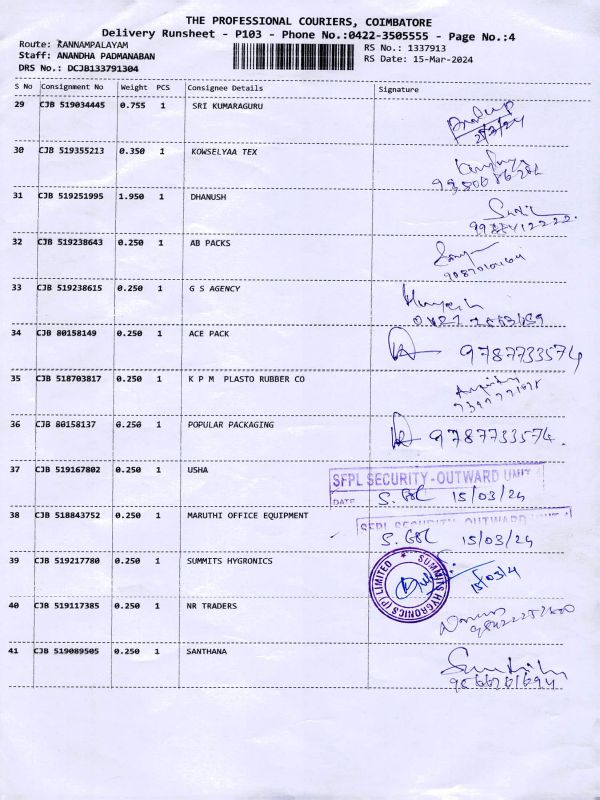 THE PROFESSIONAL COURIERS, COIMBATORE
Delivery Runsheet - P103 - Phone No.:0422-3505555 - Page No.:4
Route: KANNAMPALAYAM
RS No.: 1337913
Staff: ANANDHA PADMANABAN
RS Date: 15-Mar-2024
DRS No.: DCJB133791304
S No Consignment No Weight PCS Consignee Details Signature
29 CJB 519034445 0.755 1 SRI KUMARAGURU
30 CJB 519355213 0.350 1 KOWSELYAA TEX
31 CJB 519251995 1.950 1 DHANUSH
32 CJB 519238643 0.250 1 AB PACKS
33 CJB 519238615 0.250 1 G S AGENCY
34 CJB 80158149 0.250 1 ACE PACK 9787733574
35 CJB 518703817 0.250 1 K P M PLASTO RUBBER CO
36 CJB 80158137 0.250 1 POPULAR PACKAGING 9787733574.
37 CJB 519167802 0.250 1 USHA
SFPL SECURITY - OUTWARD UNIT
DATE 15/03/24
38 CJB 518843752 0.250 1 MARUTHI OFFICE EQUIPMENT
SFPL SECURITY OUTWARD UNIT
15/03/24
39 CJB 519217780 0.250 1 SUMMITS HYGRONICS
SUMMITS HYGRONICS (P) LIMITED
40 CJB 519117385 0.250 1 NR TRADERS
41 CJB 519089505 0.250 1 SANTHANA